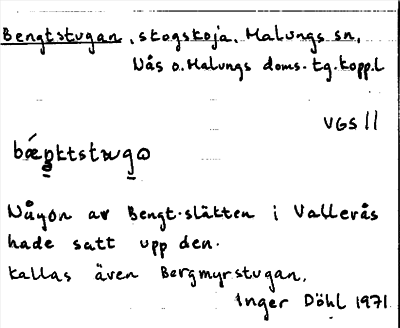 Bengtstugan, skogskoja, Malungs sn,
Nås o. Malungs doms. tg. Kopp. l
VGS 11
Någon av Bengt-slätten i Vallerås
hade satt upp den.
Kallas även Bergmyrstugan.
Inger Döhl 1971